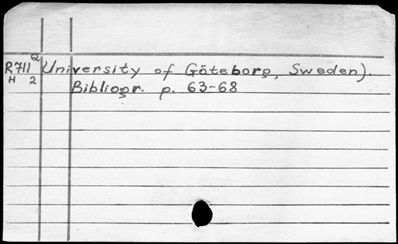 Q
R711 University of Göteborg, Sweden).
H 2 Bibliogr. p. 63-68